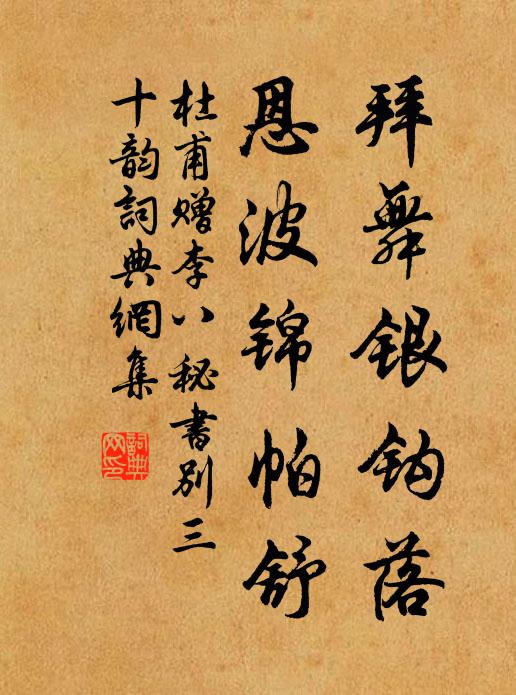 拜舞银钩落
恩波锦帕舒
杜甫赠李八秘书别三
十韵詞典網集
詞典网印